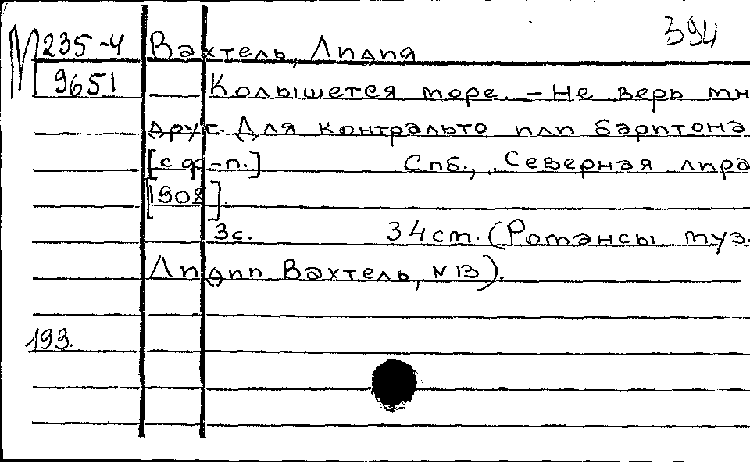 394
М 235-4 Вахтель, Лидия
9651 Колышется море. - Не верь мн
друг. Для контральто или баритона
[с ф-п.] Спб., Северная лира
[1908].
3с. 34 см. (Романсы муз.
Лидии Вахтель, №13).
193.